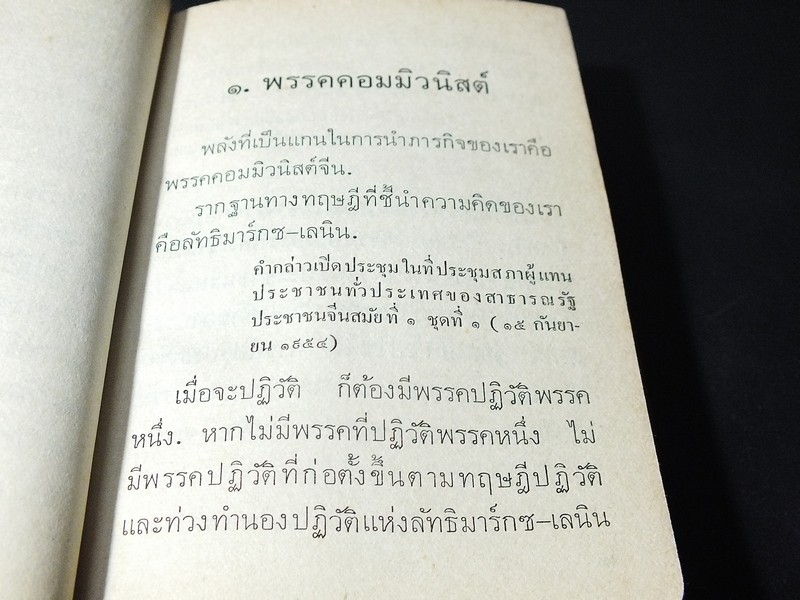 ๑. พรรคคอมมิวนิสต์
พลังที่เป็นแกนในการนำภารกิจของเราคือ
พรรคคอมมิวนิสต์จีน.
รากฐานทางทฤษฎีที่ชี้นำความคิดของเรา
คือลัทธิมาร์กซ–เลนิน.
คำกล่าวเปิดประชุมในที่ประชุมสภาผู้แทน
ประชาชนทั่วประเทศของสาธารณรัฐ
ประชาชนจีนสมัยที่ ๑ ชุดที่ ๑ (๑๕ กันยา-
ยน ๑๙๕๔)
เมื่อจะปฏิวัติ ก็ต้องมีพรรคปฏิวัติพรรค
หนึ่ง. หากไม่มีพรรคที่ปฏิวัติพรรคหนึ่ง ไม่
มีพรรคปฏิวัติที่ก่อตั้งขึ้นตามทฤษฎีปฏิวัติ
และท่วงทำนองปฏิวัติแห่งลัทธิมาร์กซ–เลนิน